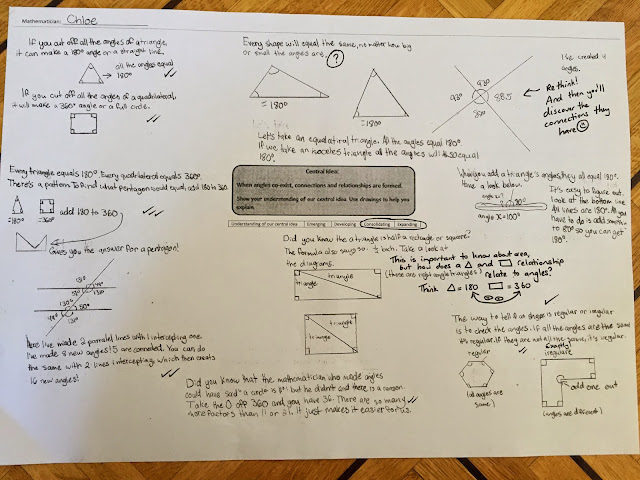 Mathematician: Chloe
If you cut off all the angles of a triangle,
it can make a 180° angle or a straight line.
all the angles equal
→ 180°
If you cut off all the angles of a quadrilateral,
it will make a 360° angle or a full circle.
Every shape will equal the same, no matter how big
or small the angles are. ?
= 180°
= 180°
Let's take an equalatiral triangle. All the angles equal 180°.
If we take an isoceles triangle all the angles will equal
180°.
I've created 4
angles.
93°
93°
Rethink!
And then you'll
discover the
connections they
have
Every triangle equals 180°. Every quadrilateral equals 360°.
There's a pattern to find what pentagon would equal, add 180 to 360.
=180°
=360°
add 180 to 360
Gives you the answer for a pentagon!
Central Idea:
When angles co-exist, connections and relationships are formed.
Show your understanding of our central idea. Use drawings to help you
explain.
Understanding of our central idea Emerging Developing Consolidating Expanding
When you add a triangle's angles they all equal 180°.
Take a look below.
angle x = 100°
It's easy to figure out.
look at the bottom line
All lines are 180°. All you
have to do is add something
to 80° so you can get
180°.
Did you know the a triangle is half a rectangle or square?
The formula also says so. Take a look at
the diagrams.
triangle
triangle
triangle
triangle
This is important to know about area,
but how does a △ and ▭ relationship
(these are right angle triangles) relate to angles?
Think △ = 180 ▭ = 360
130°
50°
130°
Here I've made 2 parralel lines with 1 intercepting one.
I've made 8 new angles! 5 are connected. You can do
the same with 2 lines intercepting which then creats
16 new angles!
Did you know that the mathematician who made angles
could have said a circle is 8° but he didn't and there is a reason.
Take the 0 off 360 and you have 36. There are so many
more factors than 11 or 61. It just makes it easier for us.
The way to tell if a shape is regular or irregular
is to check the angles. If all the angles are the same
it's regular. if they are not all the same, it's irregular.
regular
(all angles are
same)
Example
irregulare
odd one out
(angles are different)